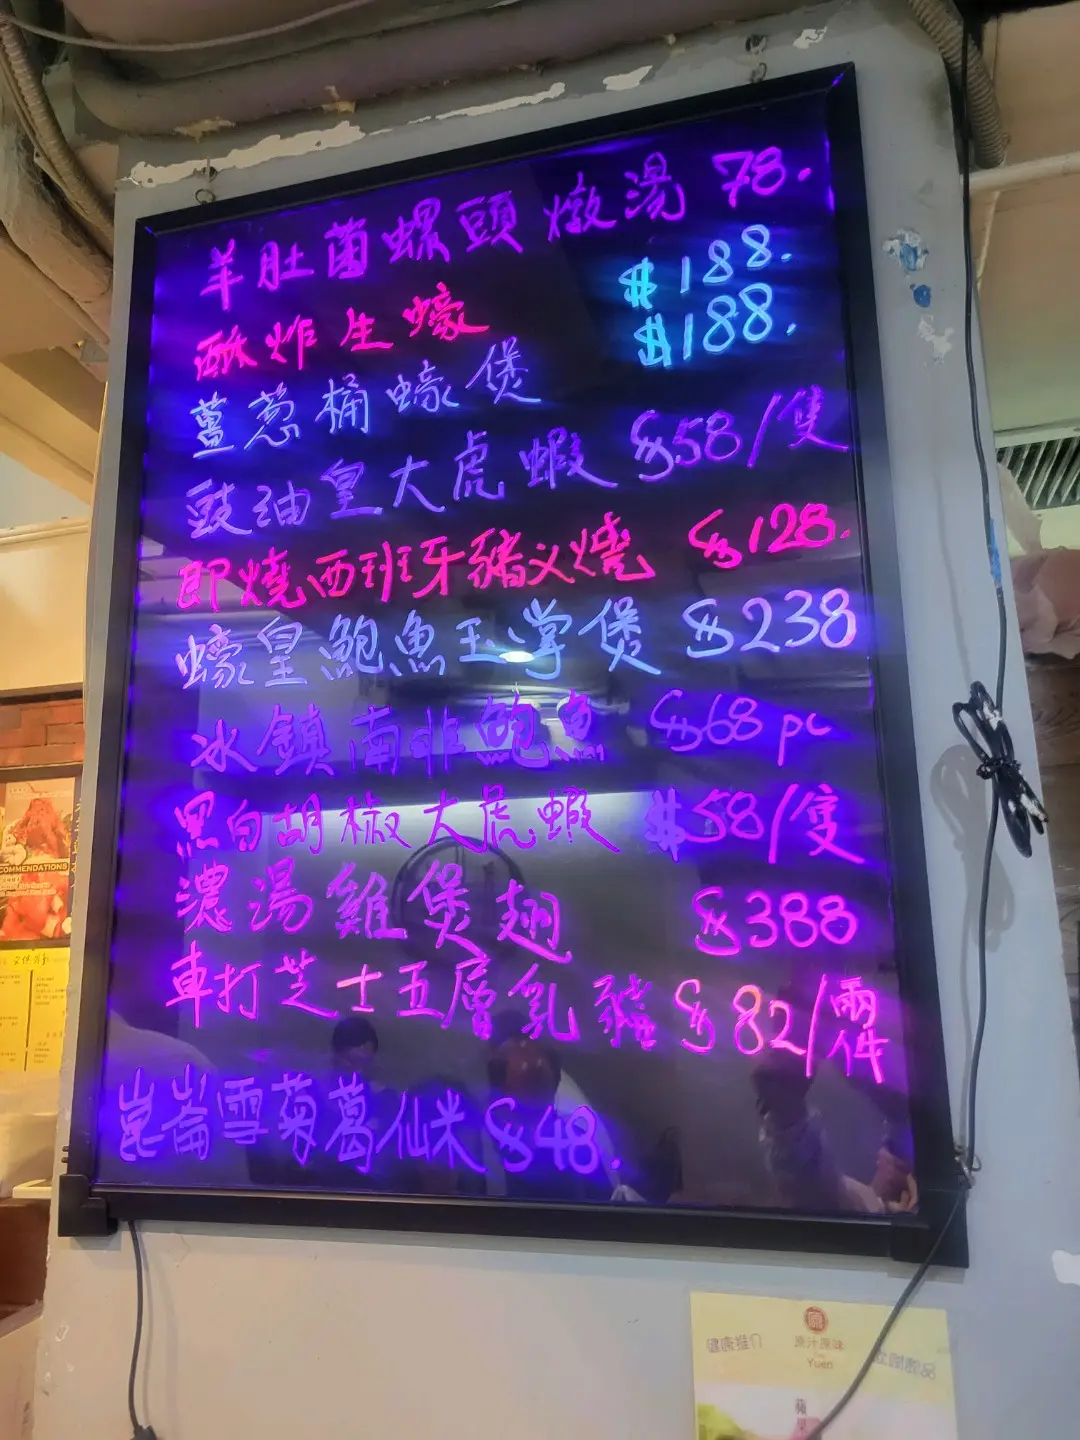 羊肚菌螺頭燉湯 78.
酥炸生蠔 $188.
薑葱桶蠔煲 $188.
豉油皇大虎蝦 $58/隻
即燒西班牙豬义燒 $128.
蠔皇鮑魚玉掌煲 $238
冰鎮南非鮑魚 $68 pc
黑白胡椒大虎蝦 $58/隻
濃湯雞煲翅 $388
車打芝士五層乳豬 $82/兩件
崑崙雪菊葛仙米 $48.
COMMENDATIONS
健康推介
原
原汁原味
Yuen
蘋果